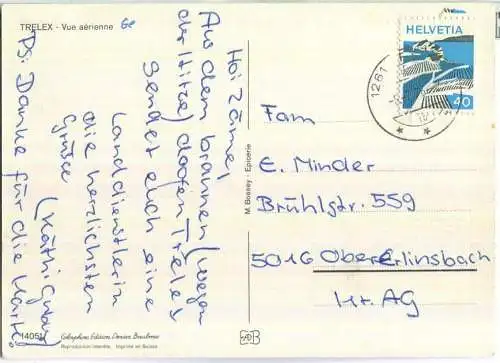 TRELEX - Vue aérienne Ge
Hoi Zäme!
Aus dem braunen (wegen
der Hitze) doofen Trelex
sendet euch eine
Landdienstlerin
die herzlichsten
Grüsse
(Käthi
Ps: Danke für die Karte!
HELVETIA
40
1261
Fam
E. Minder
Brühlstr. 559
5016 Obererlinsbach
Kt. AG
M. Bossey - Epicerie
14051
Reproduction interdite. Imprimé en Suisse